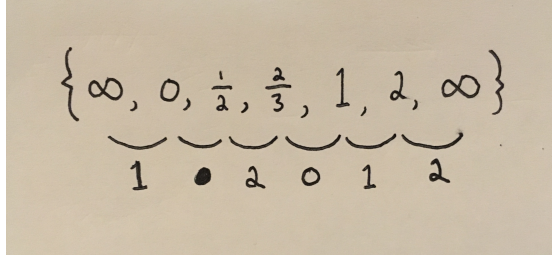 {∞, 0, 1/2, 2/3, 1, 2, ∞}
1 ● 2 0 1 2